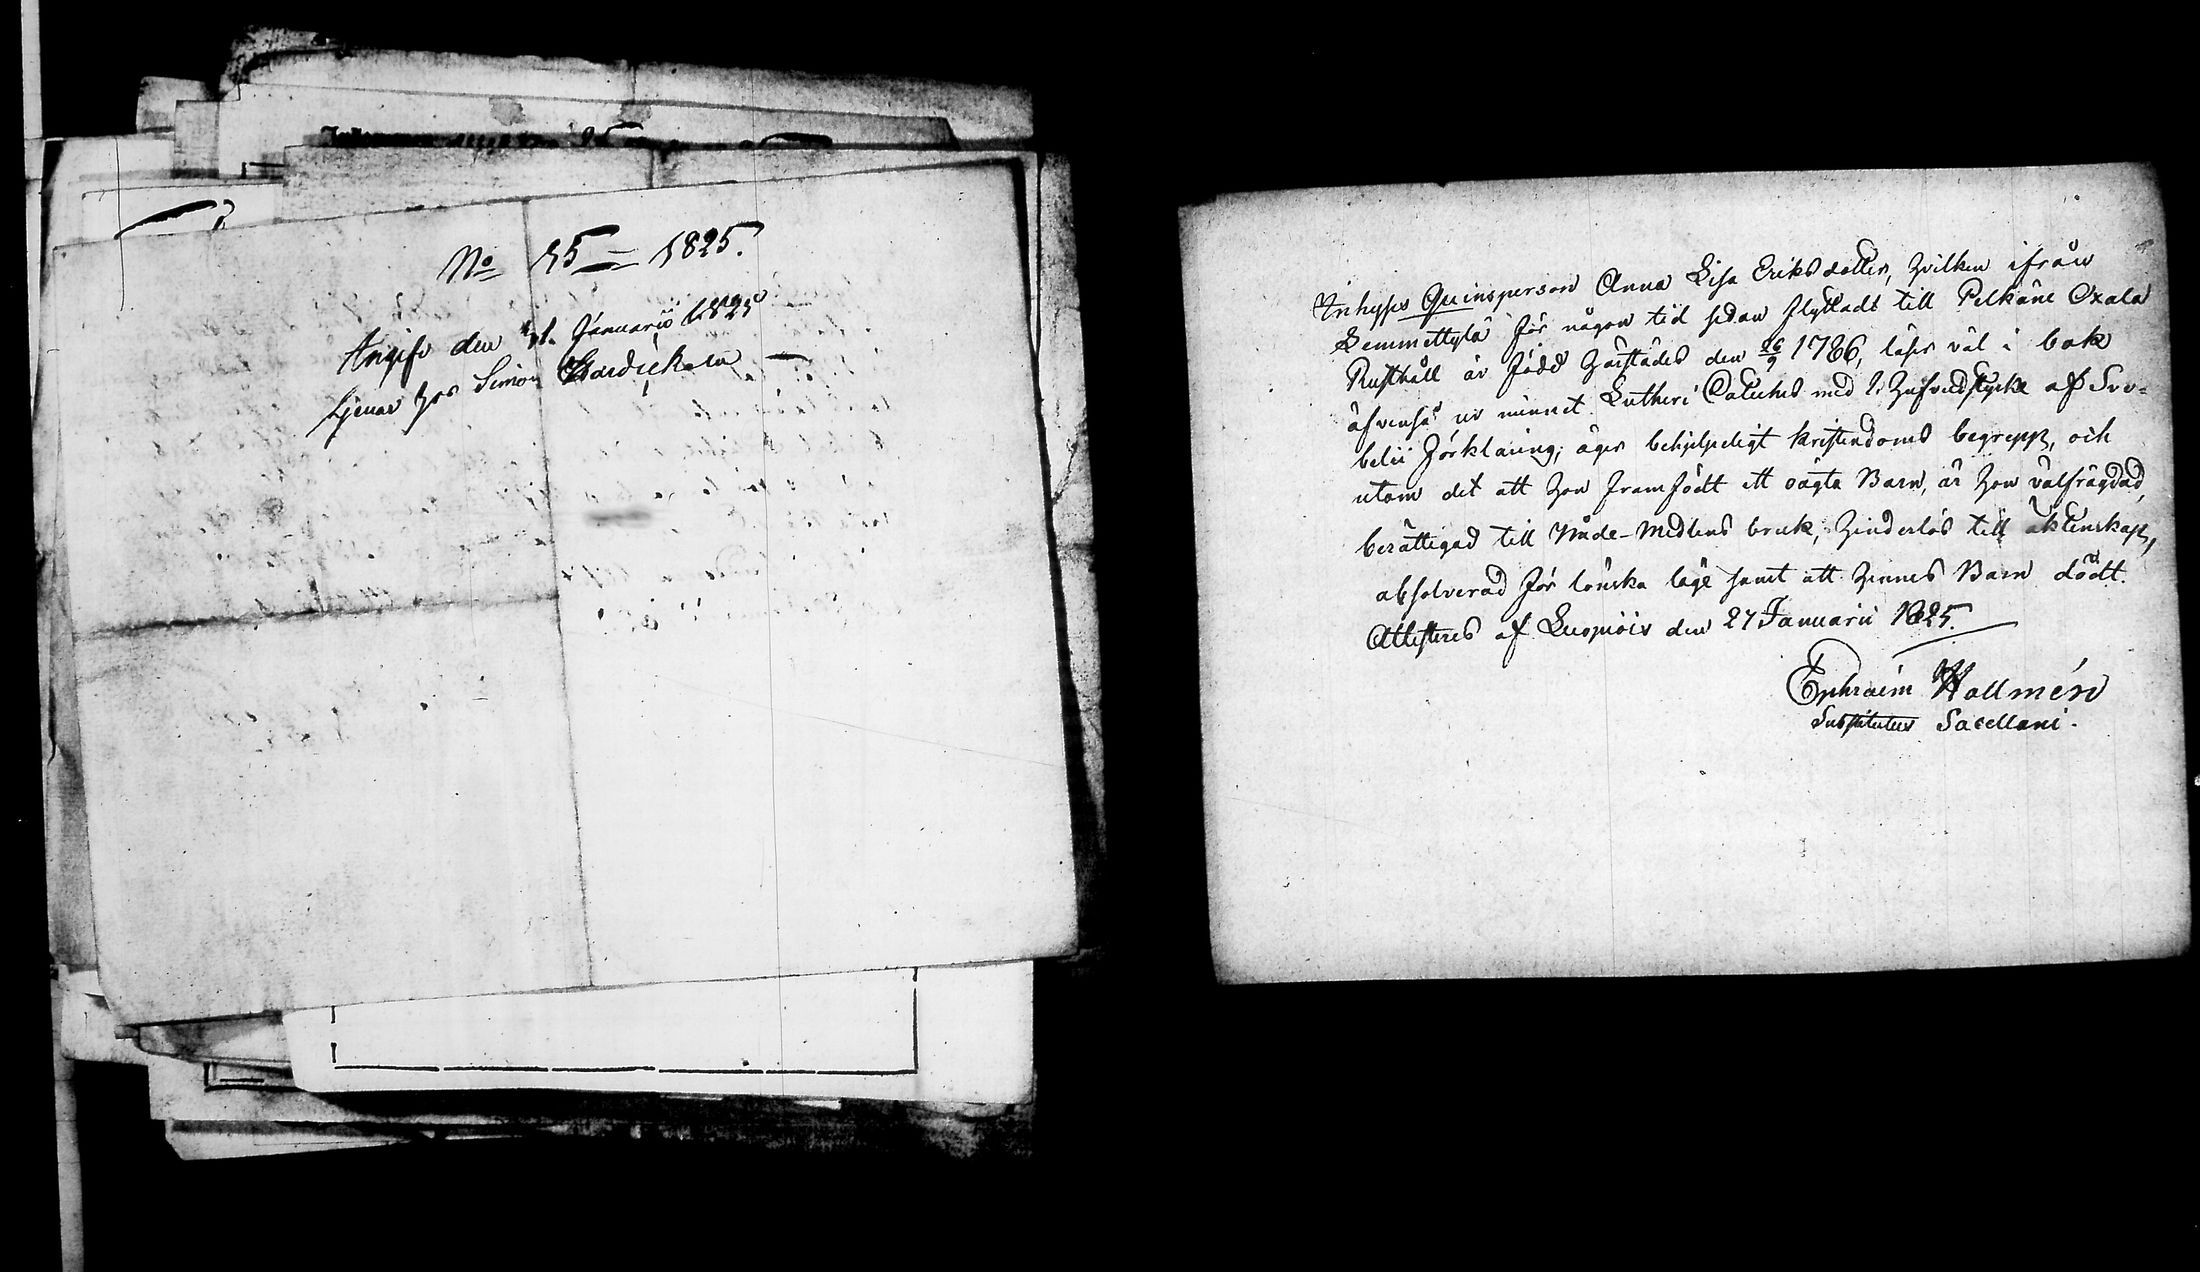 No 15 = 1825.
Angifv den 31. Januarii 1825
tjenar hos Simon
Inhyses Qvinsperson Anna Lisa Eriksdotter, hvilken ifrån
Lemmettylä för någon tid sedan flyttade till Pelkäne Oxala
Rusthåll är född härstädes den 26/9 1786, läser väl i bok
äfvenså ur minnet Lutheri Cateches med 1. Hufvudstycke af Sve-
belii förklaring; äger behjelpeligt kristendoms begrepp, och
utom det att hon framfödt ett oägta Barn, är hon välfrägdad,
berättigad till Nåde-Medlens bruk, hinderlös till äktenskap,
absolverad för lönska läge samt att hennes Barn dödt.
Attesteres af Luopiois den 27 Januarii 1825.
Ephraim Hallmén
Substitutus Sacellani.